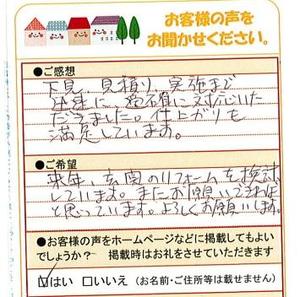 お客様の声を
お聞かせください。
●ご感想
下見、見積り、実施まで
に対応いた
だきました。仕上がりも
満足しています。
●ご希望
来年、玄関のリフォームを検討
しています。またお願いできれば
と思っています。よろしくお願いします。
●お客様の声をホームページなどに掲載してもよい
でしょうか? 掲載時はお礼をさせていただきます
☑はい □いいえ (お名前・ご住所等は載せません)